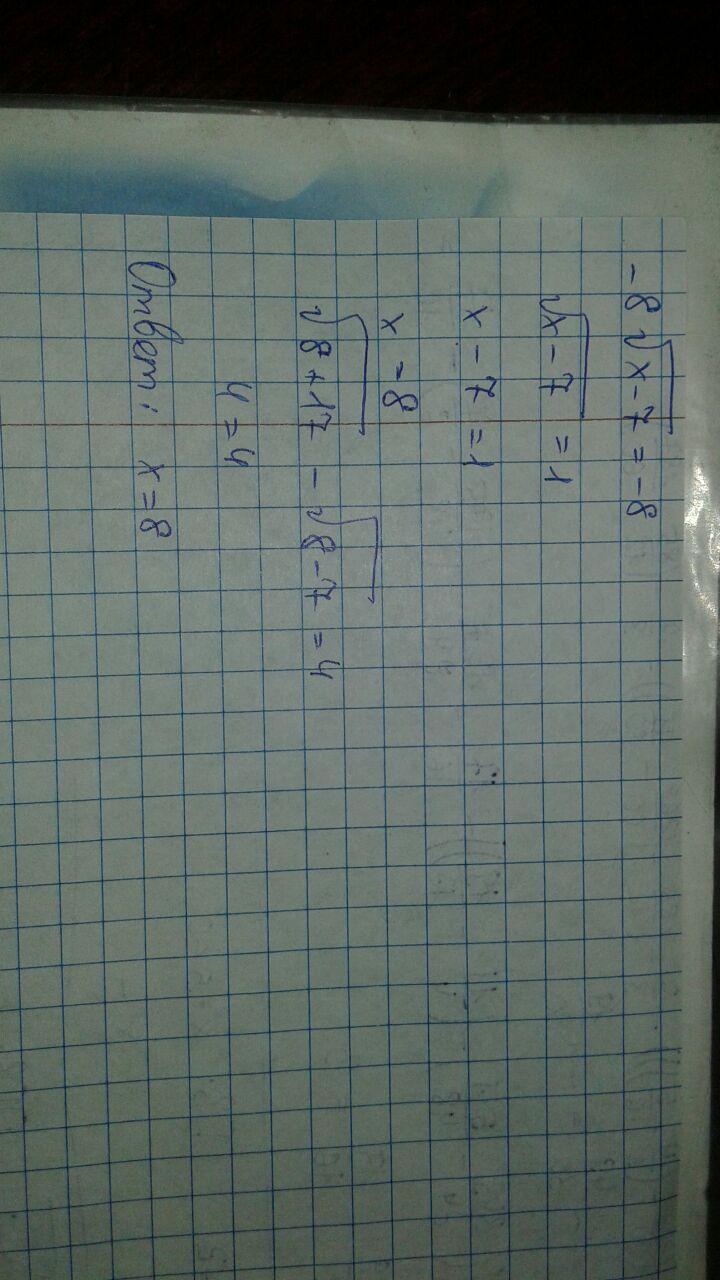 -8√x-7 = -8
√x-7 = 1
x-7 = 1
x = 8
√8+17 - √8-7 = 4
4 = 4
Ответ: x = 8